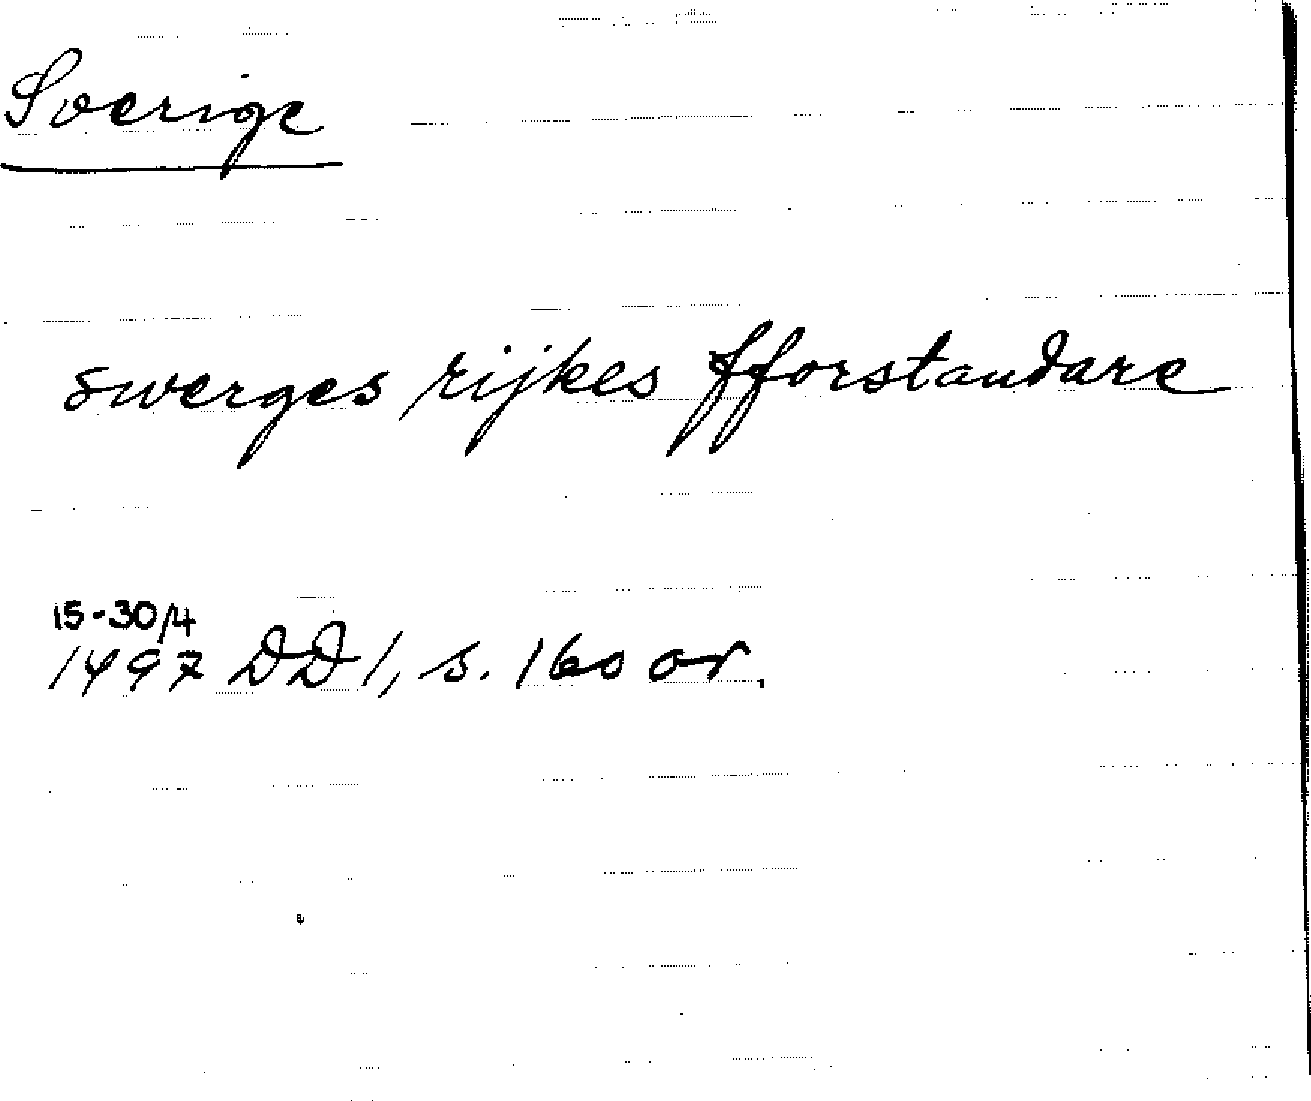 Sverige
swerges rijkes fforstandare
15-30/4
1497 DD1, s. 160 or.